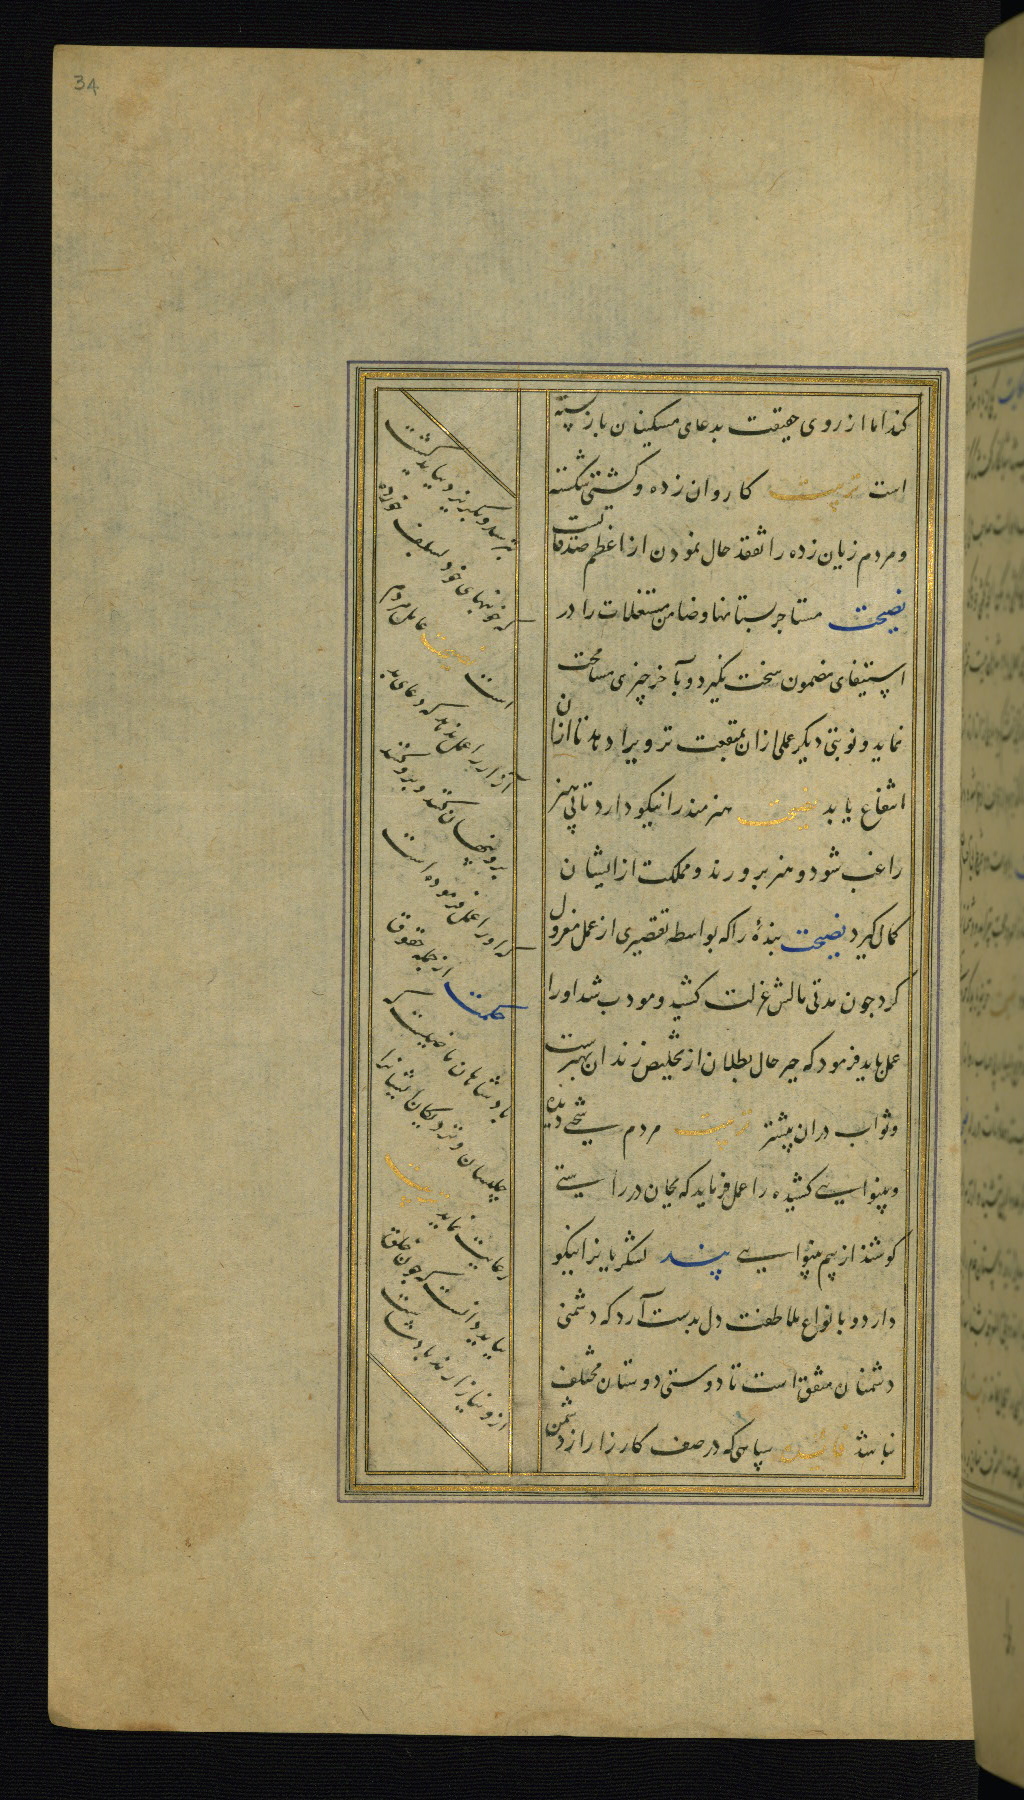 34
کند اما از روی حقیقت بدعای مسکینان باز بسته
است تربیت کاروان زده و کشتی شکسته
و مردم زیان زده را تفقد حال نمودن از اعظم صدقاتست
نصیحت مستاجر بستانها و ضامن مستغلات را در
استیفای مضمون سخت نگیرد و بآخر چیزی مسامحت
نماید و نوبتی دیگر عملی ازان بمنفعت تر ویرا دهد تا ازان
انتفاع یابد نصیحت هنرمند را نیکو دارد تا بی هنر
راغب شود و هنر برورند و مملکت از ایشان
کمال گیرد نصیحت بندهٔ را که بواسطه تقصیری از عمل معزول
کرد جون مدتی مالش عزلت کشید و مودب شد او را
عمل باید فرمود که جبر حال بطلان از تخلیص زندان بهترست
و ثواب دران بیشتر تربیت مردم سختی دیده
و بینوایی کشیده را عمل فرماید که بجان در راستی
کوشند از بیم بینوایی پند لشکریانرا نیکو
دارد و بانواع ملاطفت دل بدست آرد که دشمنی
دشمنان متفق است تا دوستی دوستان مختلف
نباشد سپاهی که در صف کارزار از دشمن
بترسد و بگریزد بباید کشت
که خونبهای خود بسلف خورده
است عامل مردم
آزار را عمل ندهد که دعای بد
برو تنها نکنند و برو کنند
که او را عمل فرموده است
حکمت از جمله حقوق
بادشاهان ماضیست که
جلیسان و نزدیکان ایشانرا
رعایت نماید تربیت
بباید دانست که جون خلق
از و نیازارند بادشاهست